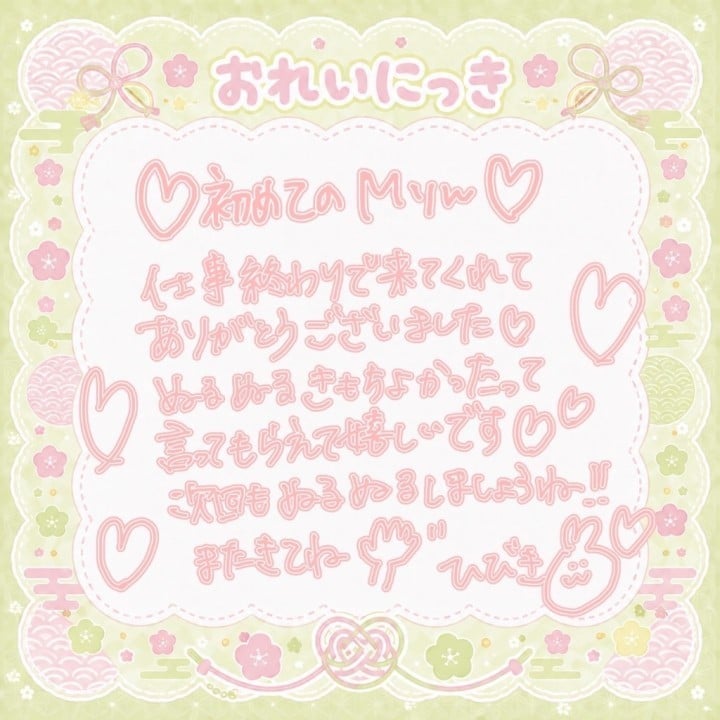 おれいにっき
♡初めてのMyw♡
仕事終わりで来てくれて
ありがとうございました♡
ぬるぬるきもちよかったって
言ってもらえて嬉しいです♡♡
次回もぬるぬるしましょうね!!
またきてね ひびき